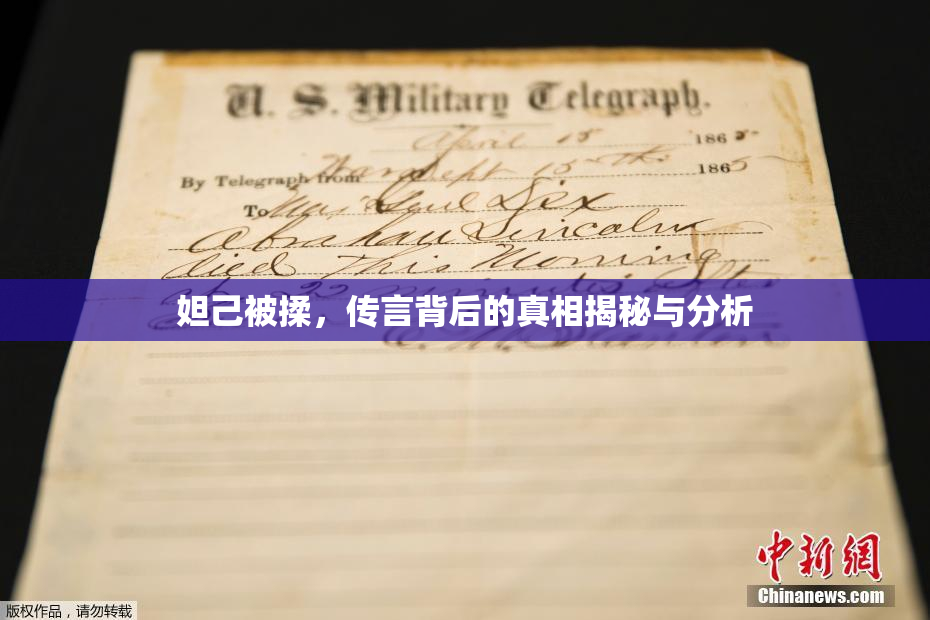 U. S. Military Telegraph.
April 15 1865
By Telegraph from War Dept 15th 1865
To Maj Genl Dix
Abraham Lincoln
died this Morning
at 22 minutes after
妲己被揉，传言背后的真相揭秘与分析
E. M. Stanton
中新网
Chinanews.com
版权作品，请勿转载